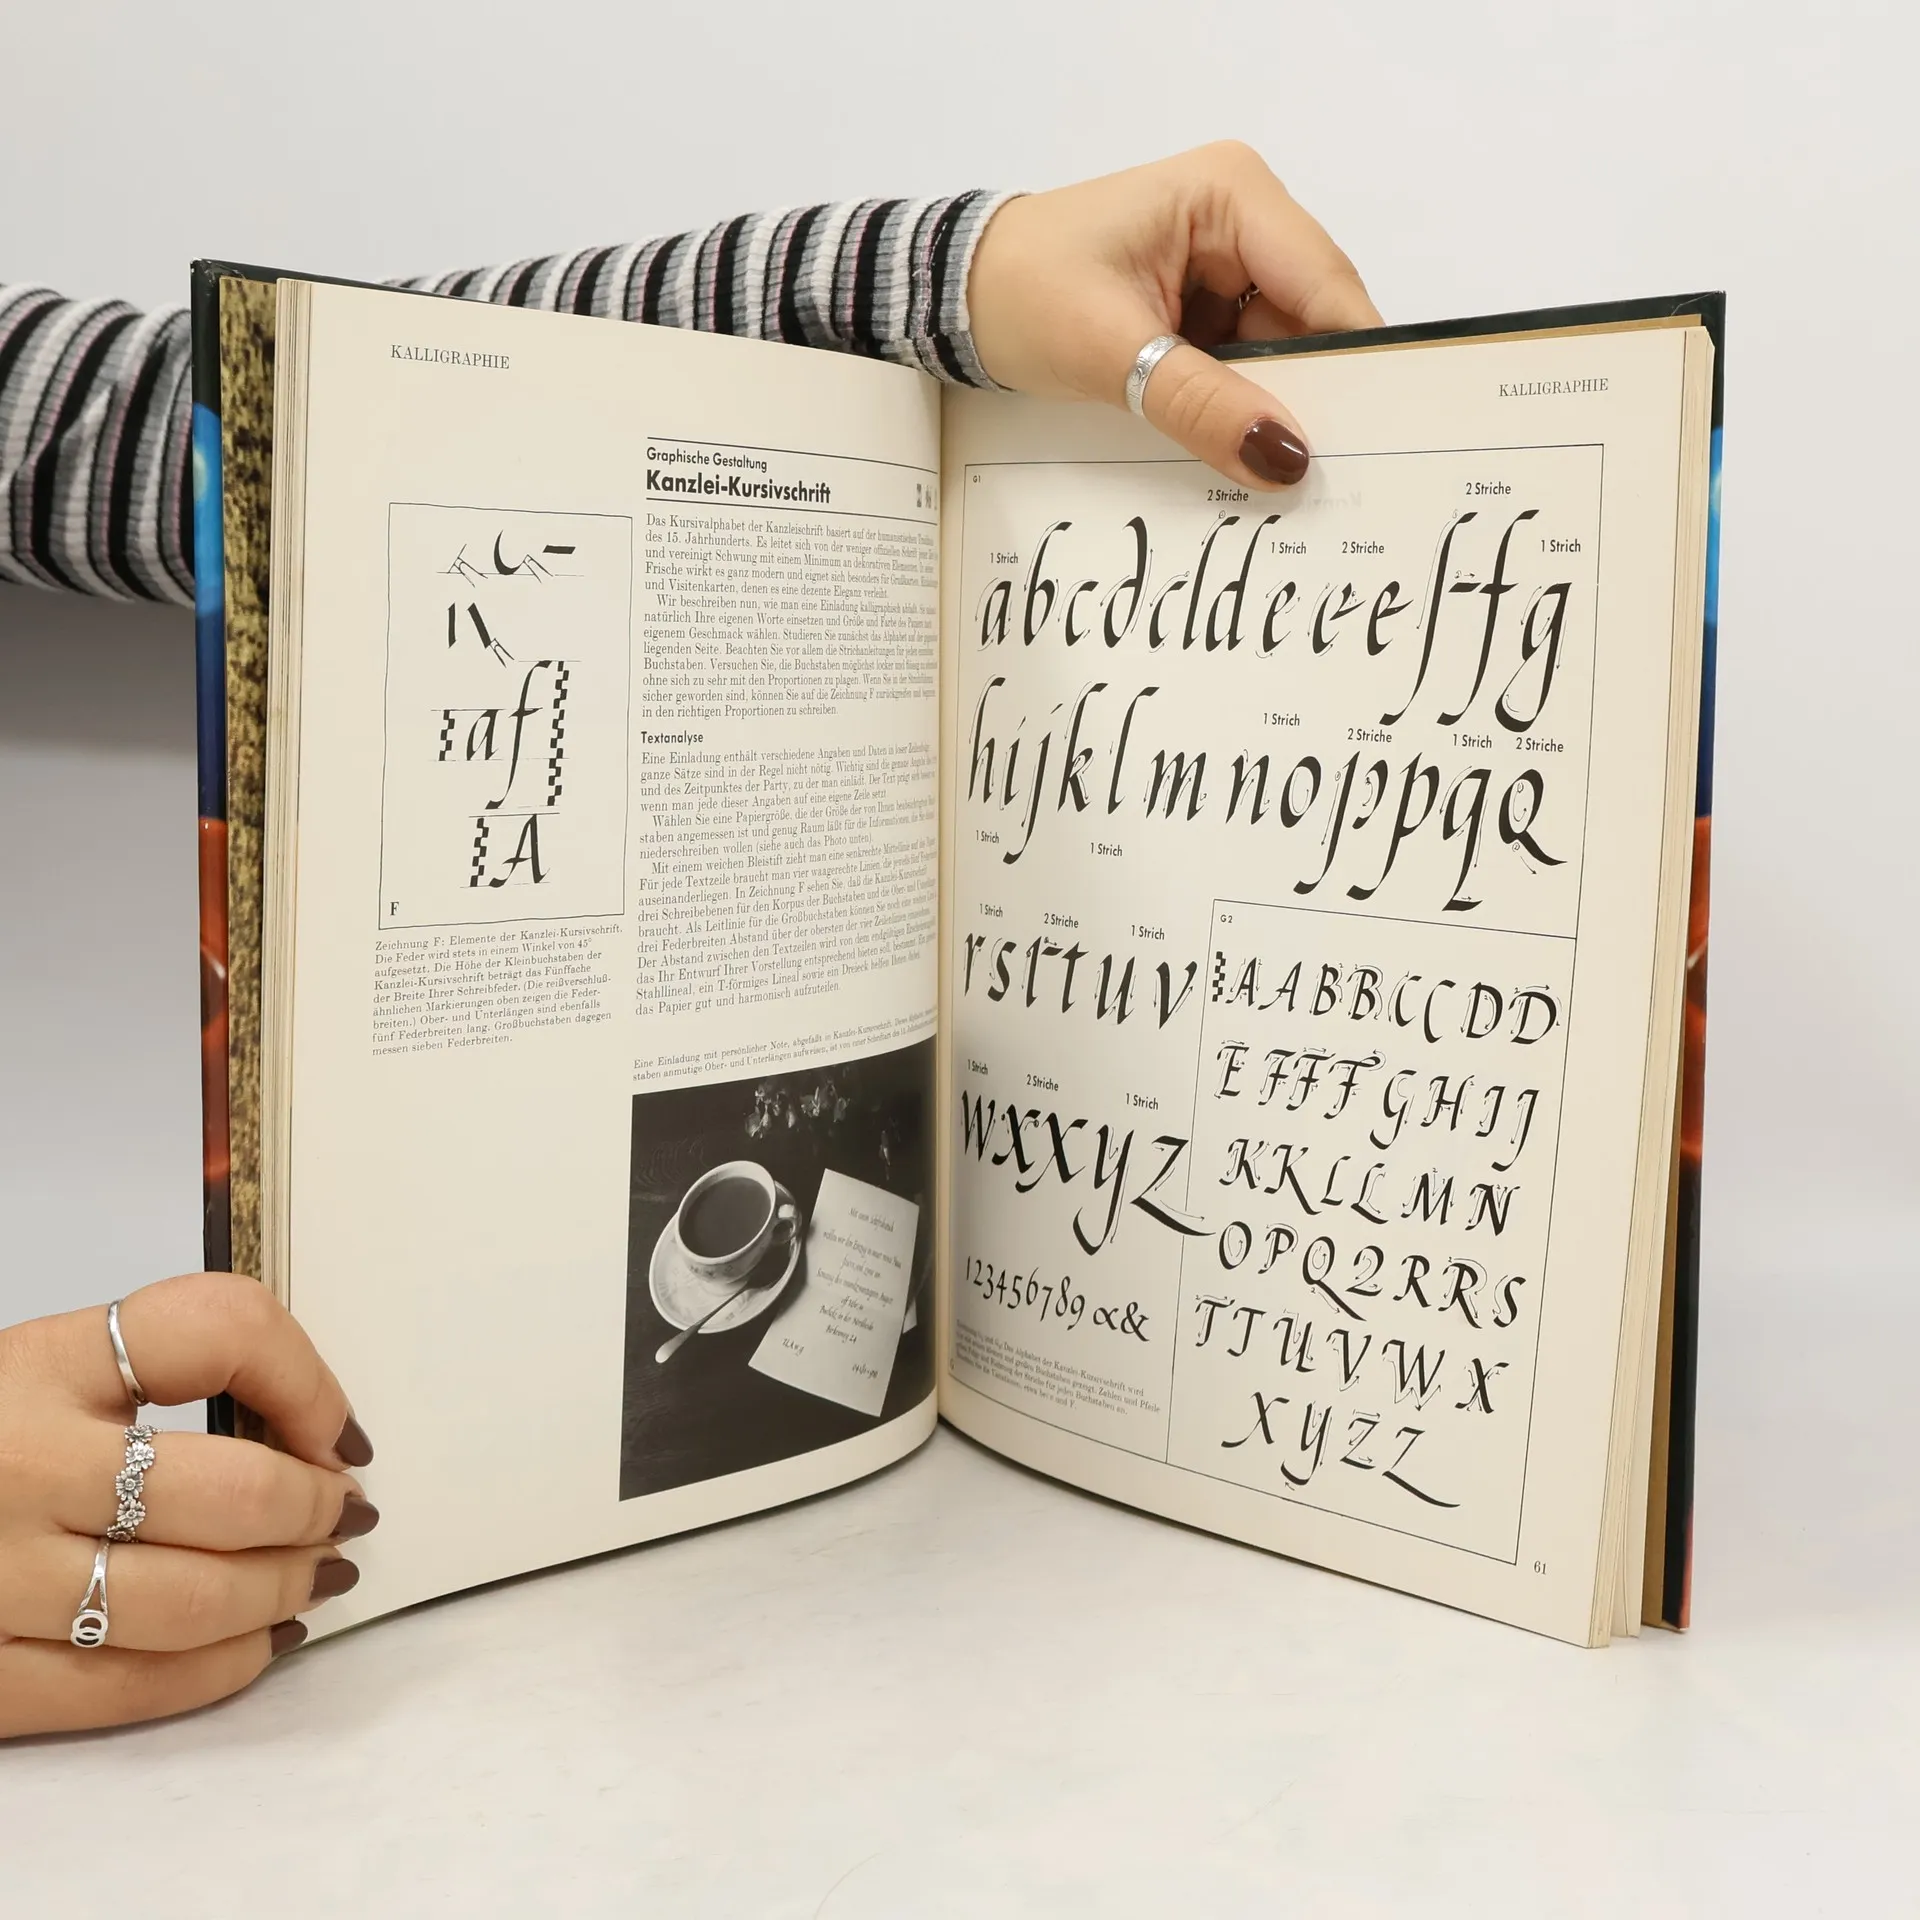 KALLIGRAPHIE
F
Zeichnung F: Elemente der Kanzlei-Kursivschrift.
Die Feder wird stets in einem Winkel von 45°
aufgesetzt. Die Höhe der Kleinbuchstaben der
Kanzlei-Kursivschrift beträgt das Fünffache
der Breite Ihrer Schreibfeder. (Die reißverschluß-
ähnlichen Markierungen oben zeigen die Feder-
breiten.) Ober- und Unterlängen sind ebenfalls
fünf Federbreiten lang. Großbuchstaben dagegen
messen sieben Federbreiten.
a f
A
Graphische Gestaltung
Kanzlei-Kursivschrift
Das Kursivalphabet der Kanzleischrift basiert auf der humanistischen
des 15. Jahrhunderts. Es leitet sich von der weniger offiziellen Schrift jener Zeit
und vereinigt Schwung mit einem Minimum an dekorativen Elementen. In seiner
Frische wirkt es ganz modern und eignet sich besonders für Grußkarten,
und Visitenkarten, denen es eine dezente Eleganz verleiht.
Wir beschreiben nun, wie man eine Einladung kalligraphisch
natürlich Ihre eigenen Worte einsetzen und Größe und Farbe des Papiers nach
eigenem Geschmack wählen. Studieren Sie zunächst das Alphabet auf der gegenüber
liegenden Seite. Beachten Sie vor allem die Strichanleitungen für jeden einzelnen
Buchstaben. Versuchen Sie, die Buchstaben möglichst locker und flüssig zu
ohne sich zu sehr mit den Proportionen zu plagen. Wenn Sie in der Strichführung
sicher geworden sind, können Sie auf die Zeichnung F zurückgreifen und beginnen,
in den richtigen Proportionen zu schreiben.
Textanalyse
Eine Einladung enthält verschiedene Angaben und Daten in loser Zeilenfolge,
ganze Sätze sind in der Regel nicht nötig. Wichtig sind die genaue Angabe des
und des Zeitpunktes der Party, zu der man einlädt. Der Text prägt sich besser
wenn man jede dieser Angaben auf eine eigene Zeile setzt.
Wählen Sie eine Papiergröße, die der Größe der von Ihnen beabsichtigten Buch-
staben angemessen ist und genug Raum läßt für die Informationen, die Sie darauf
niederschreiben wollen (siehe auch das Photo unten).
Mit einem weichen Bleistift zieht man eine senkrechte Mittellinie auf das Papier.
Für jede Textzeile braucht man vier waagerechte Linien, die jeweils fünf Federbreiten
auseinanderliegen. In Zeichnung F sehen Sie, daß die Kanzlei-Kursivschrift
drei Schreibebenen für den Korpus der Buchstaben und die Ober- und Unterlängen
braucht. Als Leitlinie für die Großbuchstaben können Sie noch eine weitere Linie
drei Federbreiten Abstand über der obersten der vier Zeilenlinien
Der Abstand zwischen den Textzeilen wird von dem endgültigen Erscheinungsbild,
das Ihr Entwurf Ihrer Vorstellung entsprechend bieten soll, bestimmt. Ein
Stahllineal, ein T-förmiges Lineal sowie ein Dreieck helfen Ihnen dabei,
das Papier gut und harmonisch aufzuteilen.
Eine Einladung mit persönlicher Note, abgefaßt in Kanzlei-Kursivschrift. Dieses Alphabet, dessen
staben anmutige Ober- und Unterlängen aufweisen, ist von einer Schreibart des 15. Jahrhunderts
KALLIGRAPHIE
G1
2 Striche 2 Striche
1 Strich 1 Strich 2 Striche 1 Strich
a b c d cl d e e e e f f g
1 Strich 2 Striche 1 Strich 2 Striche
h i j k l m n o p p p q Q
1 Strich 1 Strich
1 Strich 2 Striche 1 Strich
r s t t u v
1 Strich 2 Striche 1 Strich
w x x y z
1 2 3 4 5 6 7 8 9 &
G2
A A B B C C D D
E F F F G H I J
K K L L M N
O P Q 2 R R S
T T U V W X
X Y Z Z
61